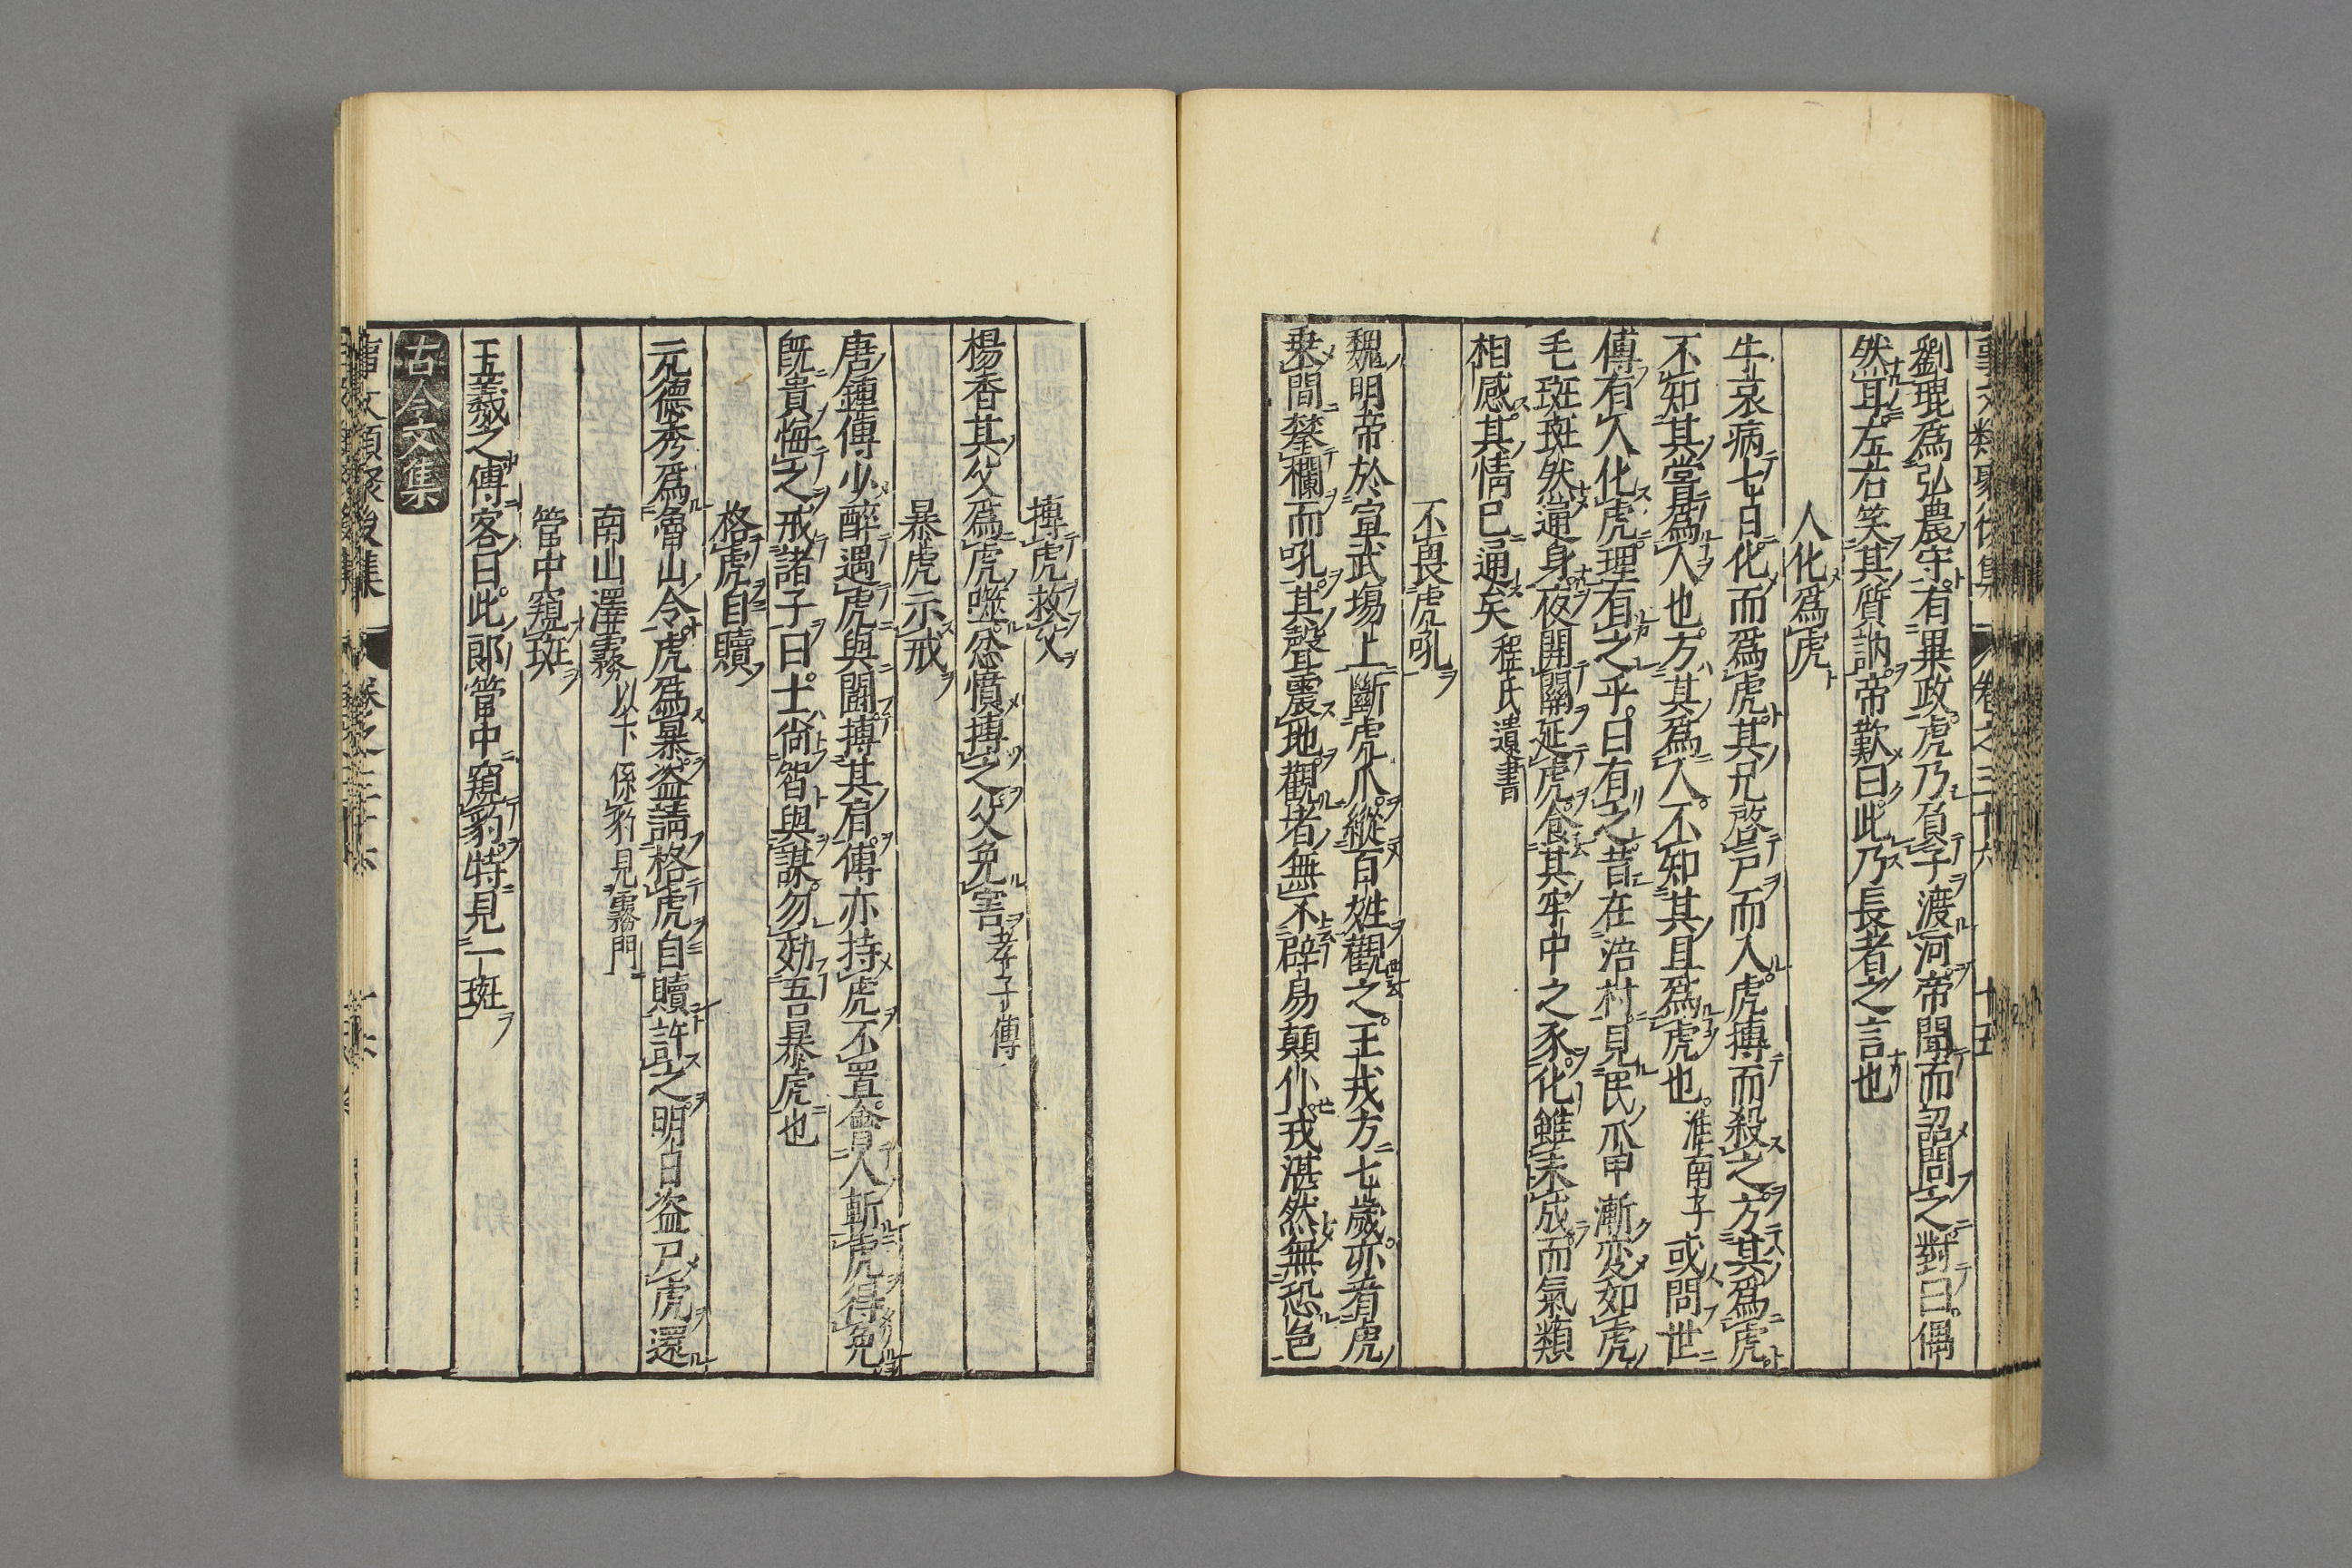 劉琨爲弘農守有異政虎乃負子渡河帝聞而詔問之對曰偶
然耳左右笑其質訥帝歎曰此乃長者之言也
人化爲虎
牛哀病七日化而爲虎其兄啓戸而入虎搏而殺之方其爲虎
不知其甞爲人也方其爲人不知其且爲虎也淮南子或問世
傳有人化虎理有之乎曰有之昔在涪村見民爪甲漸変如虎
毛斑斑然通身夜開關延虎食其牢中之豕化雖未成而氣類
相感其情已通矣程氏遺書
不畏虎吼
魏明帝於宣武場上斷虎爪縱百姓觀之王戎方七歲亦看虎
乗間攀欄而吼其聲震地觀堵無不辟易顛仆戎湛然無恐色
搏虎救父
楊香其父爲虎噬忿憤搏之父免害孝子傳
暴虎示戒
唐鍾傳少醉遇虎與鬪搏其肩傳亦持虎不置會人斬虎得免
既貴悔之戒諸子曰士尚智與謀勿効吾暴虎也
格虎自贖
元德秀爲魯山令虎爲暴盗請格虎自贖許之明日盗尸虎還
南山澤霧以下係豹見霧門
管中窺斑
王羲之傳客曰此郎管中窺豹特見一斑
古今文集